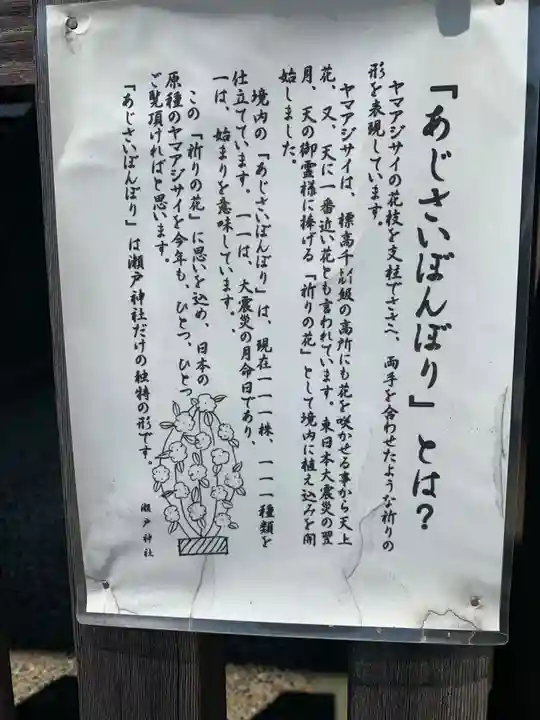 「あじさいぼんぼり」とは？
ヤマアジサイの花枝を支柱でささえ、両手を合わせたような祈りの
形を表現しています。
ヤマアジサイは、標高千㍍級の高所にも花を咲かせる事から天上
花、又、天に一番近い花とも言われています。東日本大震災の翌
月、天の御霊様に捧げる「祈りの花」として境内に植え込みを開
始しました。
境内の「あじさいぼんぼり」は、現在一一一株、一一一種類を
仕立てています。一一は、大震災の月命日であり、
一は、始まりを意味しています。
この「祈りの花」に思いを込め、日本の
原種のヤマアジサイを今年も、ひとつ、ひとつ
ご覧頂ければと思います。
「あじさいぼんぼり」は瀬戸神社だけの独特の形です。
瀬戸神社